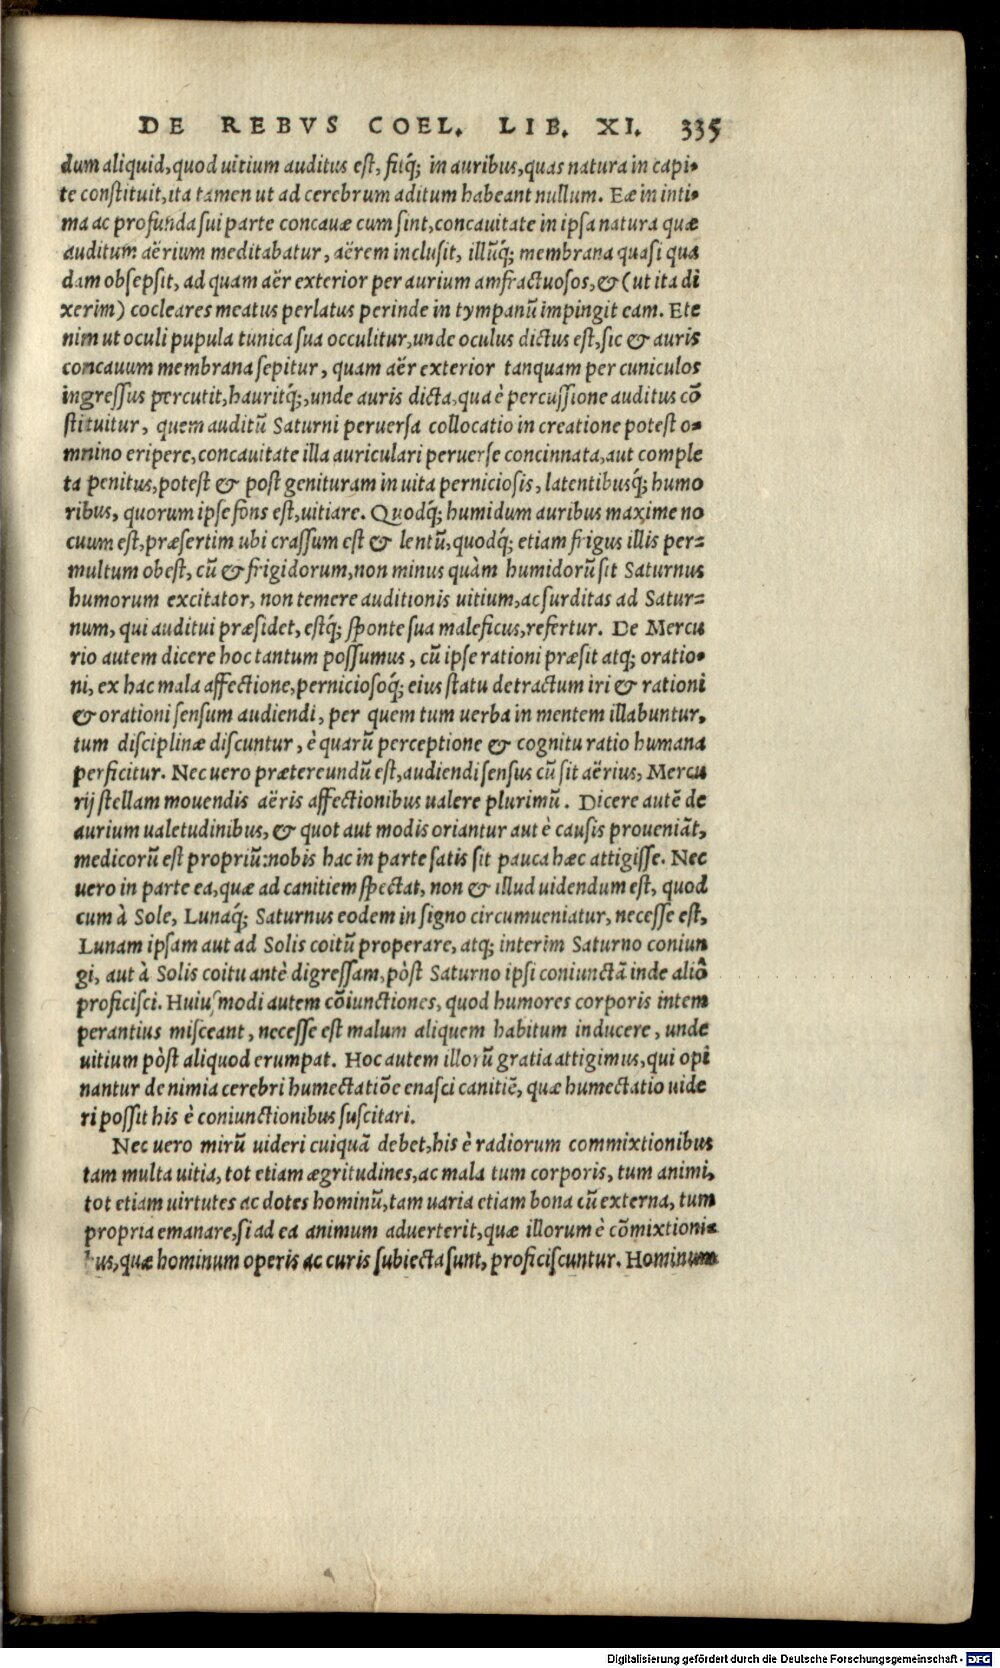 DE REBVS COEL. LIB. XI. 335
dum aliquid, quod uitium auditus est, fitq́; in auribus, quas natura in capi-
te constituit, ita tamen ut ad cerebrum aditum habeant nullum. Eæ in inti-
ma ac profunda sui parte concauæ cum sint, concauitate in ipsa natura quæ
auditum aërium meditabatur, aërem inclusit, illūq́; membrana quasi qua
dam obsepsit, ad quam aër exterior per aurium amfractuosos, & (ut ita di
xerim) cocleares meatus perlatus perinde in tympanū impingit eam. Ete
nim ut oculi pupula tunica sua occulitur, unde oculus dictus est, sic & auris
concauum membrana sepitur, quam aër exterior tanquam per cuniculos
ingressus percutit, hauritq́;, unde auris dicta, qua è percussione auditus cō
stituitur, quem auditū Saturni peruersa collocatio in creatione potest o-
mnino eripere, concauitate illa auriculari peruerse concinnata, aut comple
ta penitus, potest & post genituram in uita perniciosis, latentibusq́; humo
ribus, quorum ipse fons est, uitiare. Quodq́; humidum auribus maxime no
cuum est, præsertim ubi crassum est & lentū, quodq́; etiam frigus illis per-
multum obest, cū & frigidorum, non minus quàm humidorū sit Saturnus
humorum excitator, non temere auditionis uitium, ac surditas ad Satur-
num, qui auditui præsidet, estq́; sponte sua maleficus, refertur. De Mercu
rio autem dicere hoc tantum possumus, cū ipse rationi præsit atq; oratio-
ni, ex hac mala affectione, perniciosoq́; eius statu detractum iri & rationi
& orationi sensum audiendi, per quem tum uerba in mentem illabuntur,
tum disciplinæ discuntur, è quarū perceptione & cognitu ratio humana
perficitur. Nec uero prætereundū est, audiendi sensus cū sit aërius, Mercu
rij stellam mouendis aëris affectionibus ualere plurimū. Dicere autē de
aurium ualetudinibus, & quot aut modis oriantur aut è causis proueniāt,
medicorū est propriū: nobis hac in parte satis sit pauca hæc attigisse. Nec
uero in parte ea, quæ ad canitiem spectat, non & illud uidendum est, quod
cum à Sole, Lunaq́; Saturnus eodem in signo circumueniatur, necesse est,
Lunam ipsam aut ad Solis coitū properare, atq; interim Saturno coniun
gi, aut à Solis coitu antè digressam, pòst Saturno ipsi coniunctā inde aliò
proficisci. Huiusmodi autem cōiunctiones, quod humores corporis intem
perantius misceant, necesse est malum aliquem habitum inducere, unde
uitium pòst aliquod erumpat. Hoc autem illorū gratia attigimus, qui opi
nantur de nimia cerebri humectatiōe enasci canitiē, quæ humectatio uide
ri possit his è coniunctionibus suscitari.
Nec uero mirū uideri cuiquā debet, his è radiorum commixtionibus
tam multa uitia, tot etiam ægritudines, ac mala tum corporis, tum animi,
tot etiam uirtutes ac dotes hominū, tam uaria etiam bona cū externa, tum
propria emanare, si ad ea animum aduerterit, quæ illorum è cōmixtioni-
bus, quæ hominum operis ac curis subiecta sunt, proficiscuntur. Hominum
Digitalisierung gefördert durch die Deutsche Forschungsgemeinschaft - DFG